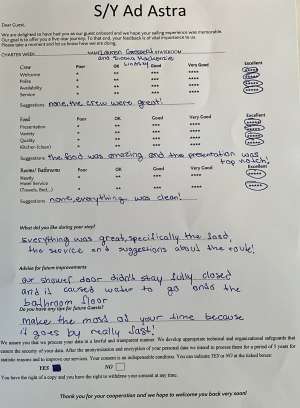 S/Y Ad Astra
Dear Guest,
We are delighted to have had you as our guest onboard and we hope your sailing experience was memorable.
Our goal is to offer you a five-star journey. To that end, your feedback is of vital importance to us.
Please take a moment and let us know how we are doing.
CHARTER WEEK NAME Lauren STATEROOM
and Sienna Mackenzie
Lindsay
Crew Poor OK Good Very Good Excellent
Welcome * ** *** **** *****
Polite * ** *** **** *****
Availability * ** *** **** *****
Service * ** *** **** *****
Suggestions none, the crew were great!
Food Poor OK Good Very Good Excellent
Presentation * ** *** **** *****
Variety * ** *** **** *****
Quality * ** *** **** *****
Kitchen (clean) * ** *** **** *****
Suggestions the food was amazing and the presentation was
top notch!
Rooms/ Bathrooms Poor OK Good Very Good Excellent
Neatly * ** *** **** *****
Hotel Service * ** *** **** *****
(Towels, Bed,..)
Suggestions none, everything was clean!
What did you like during your stay?
Everything was great, specifically the food,
the service and suggestions about the route!
Advise for future improvements
our shower door didn't stay fully closed
and it caused water to go onto the
bathroom floor
Do you have any tips for future Guests?
make the most of your time because
it goes by really fast!
We assure you that we process your data in a lawful and transparent manner. We develop appropriate technical and organizational safeguards that
ensure the security of your data. After the anonymization and encryption of your personal data we intend to process them for a period of 5 years for
statistic reasons and to improve our services. Your consent is an indispensable condition. You can indicate YES or NO at the ticked boxes:
YES NO
You have the right of a copy and you have the right to withdraw your consent at any time.
Thank you for your cooperation and we hope to welcome you back very soon!